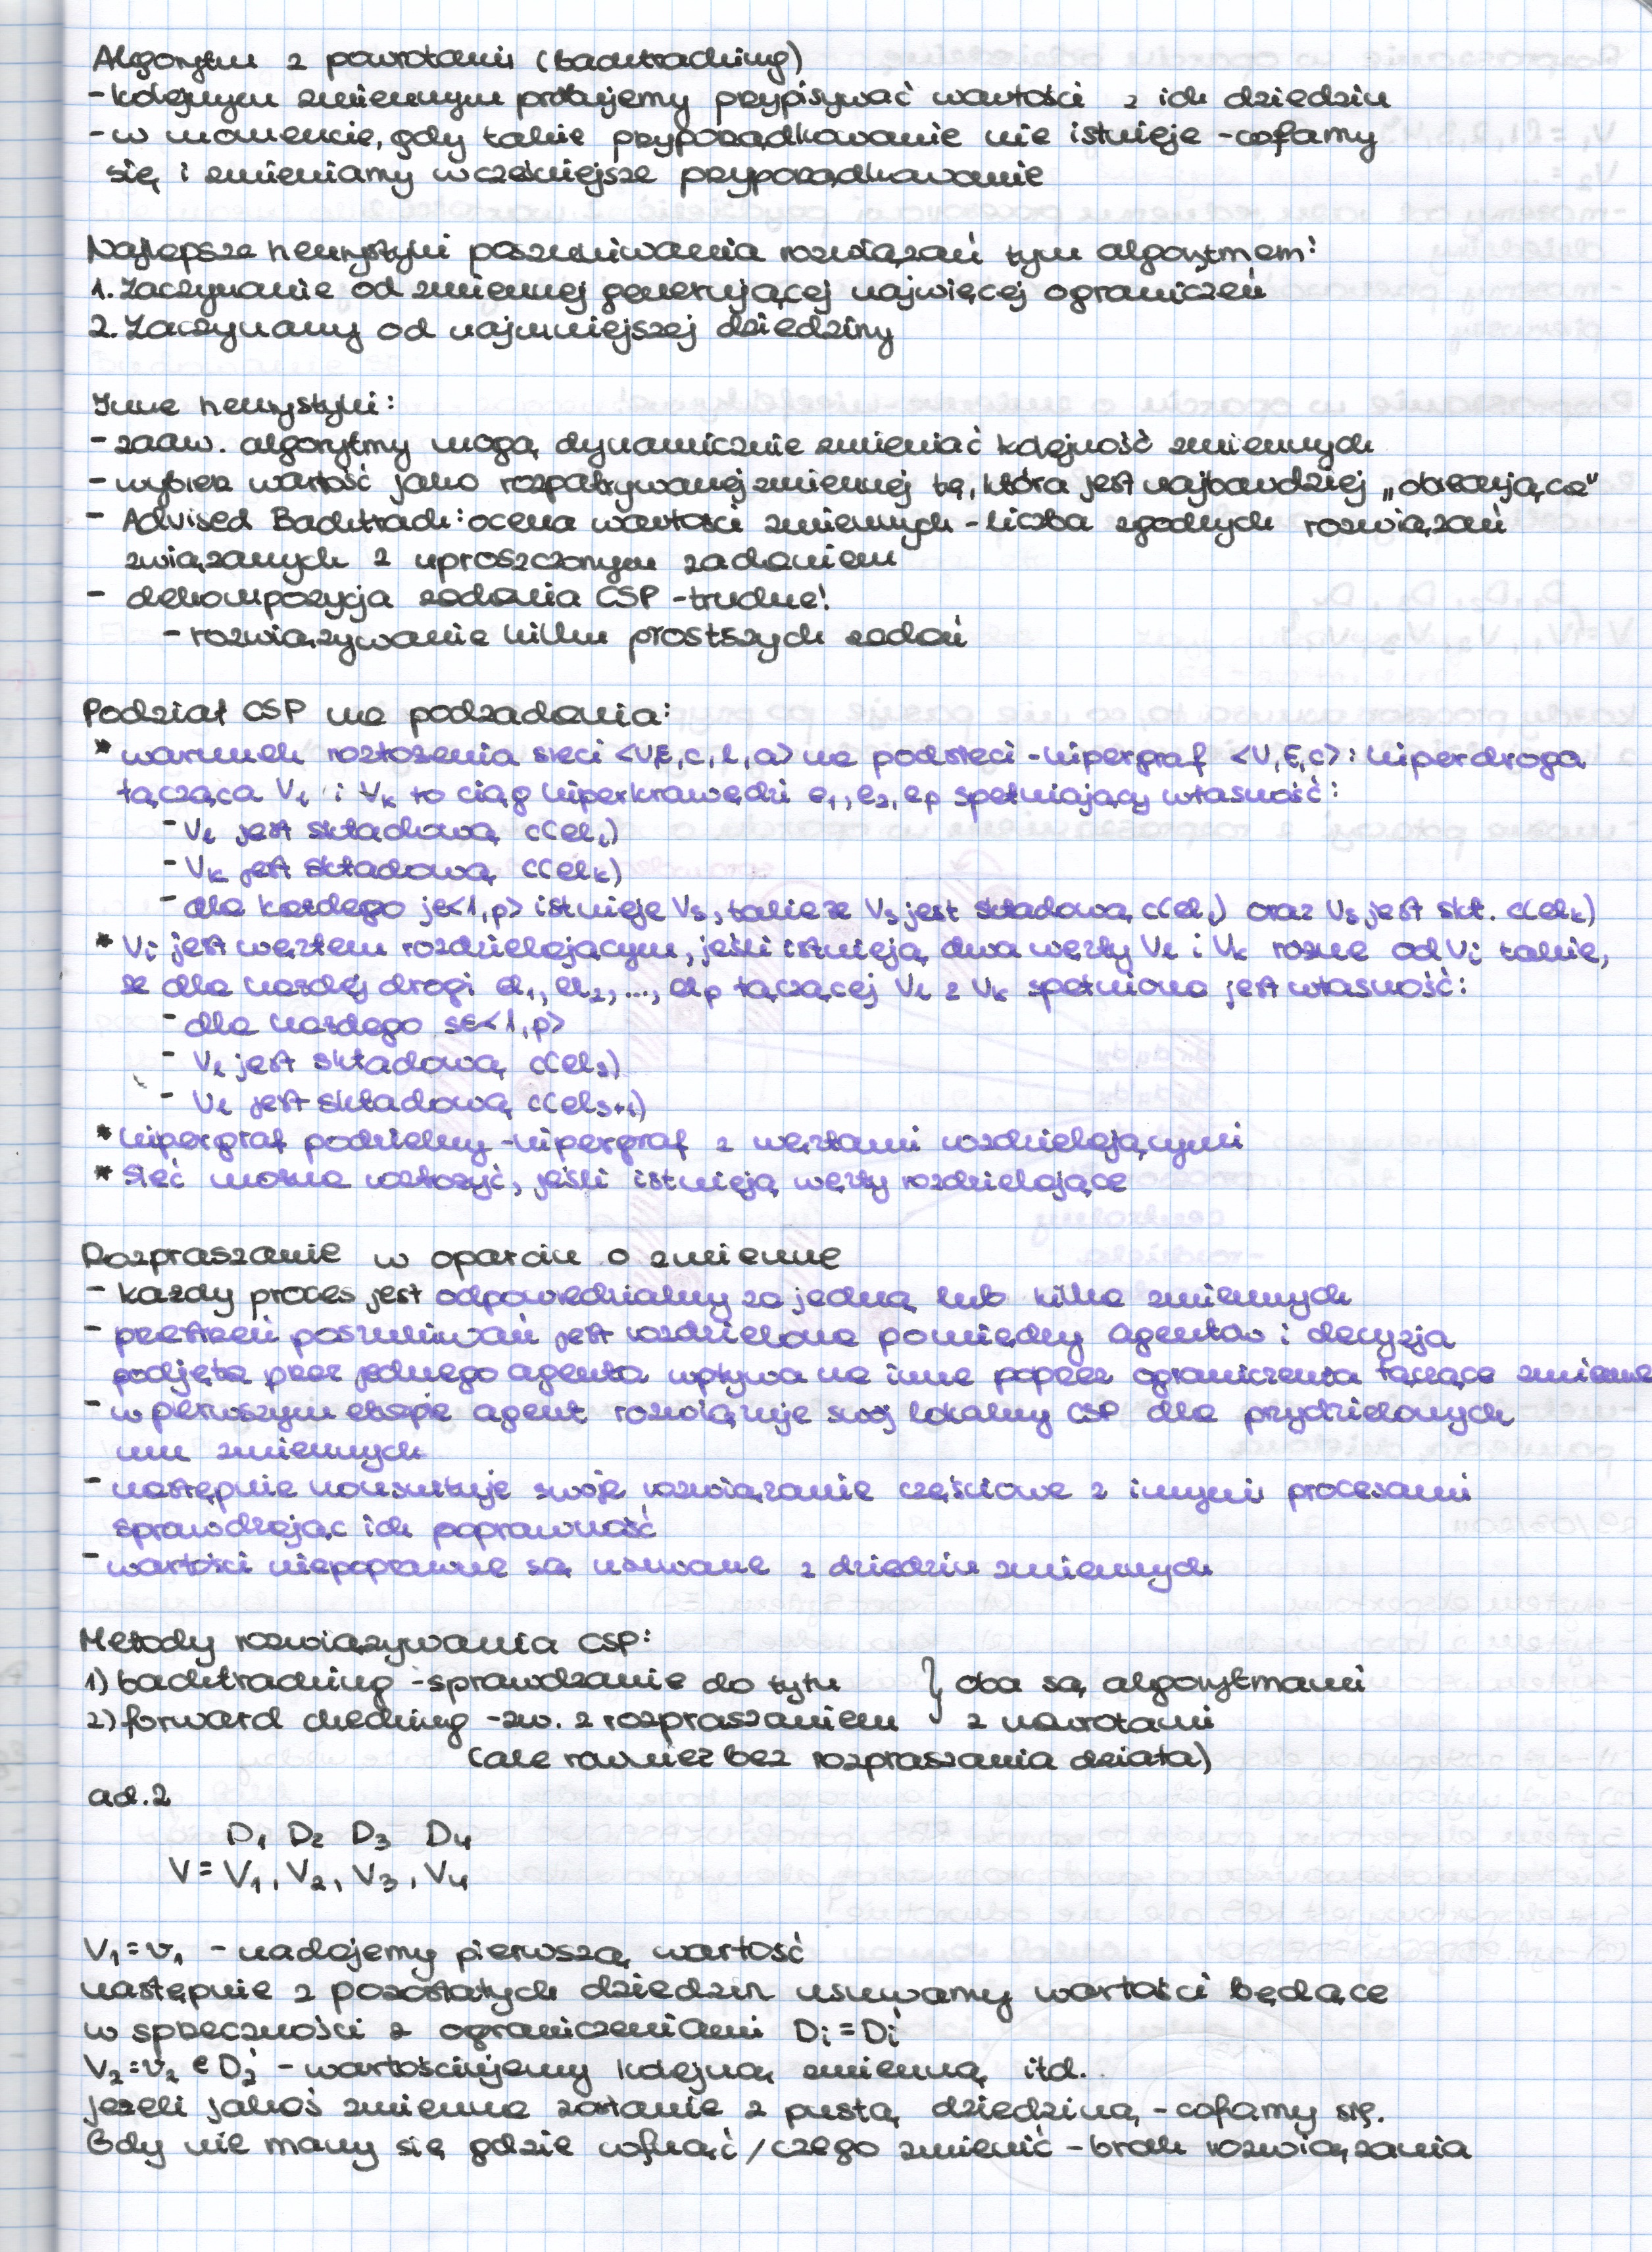 Algorytm z powrotami (backtracking)
- kolejnym zmiennym próbujemy przypisywać wartości z ich dziedzin
- w momencie, gdy takie przyporządkowanie nie istnieje - cofamy
się i zmieniamy wcześniejsze przyporządkowanie
Najlepsze heurystyki poszukiwania rozwiązań tym algorytmem:
1. Zaczynanie od zmiennej generującej najwięcej ograniczeń
2. Zaczynamy od najmniejszej dziedziny
Inne heurystyki:
- zaaw. algorytmy mogą dynamicznie zmieniać kolejność zmiennych
- wybierz wartość jako rozpatrywanej zmiennej tę, która jest najbardziej „obiecująca"
- Advised Backtrack: ocena wartości zmiennych - liczba zgodnych rozwiązań
związanych z uproszczonym zadaniem
- dekompozycja zadania CSP - trudne!
- rozwiązywanie kilku prostszych zadań
Podział CSP na podzadania:
* warunek rozłożenia sieci <V,E,c,l,a> na podsieci - hipergraf <V,E,c>: hiperdroga
łącząca Vl i Vk to ciąg hiperkrawędzi e1, e2, ep spełniający własność:
- Vl jest składową c(el1)
- Vk jest składową c(elk)
- dla każdego j∈<1,p> istnieje Vs, takie że Vs jest składową c(elj) oraz Vs jest skł. c(elk)
* Vi jest węzłem rozdzielającym, jeśli istnieją dwa węzły Vl i Vk różne od Vi takie,
że dla każdej drogi el1, el2, ..., elp łączącej Vl z Vk spełniona jest własność:
- dla każdego s∈<1,p>
- Vl jest składową c(els)
- Vl jest składową c(els+1)
* hipergraf podzielny - hipergraf z węzłami rozdzielającymi
* Sieć można rozłożyć, jeśli istnieją węzły rozdzielające
Rozpraszanie w oparciu o zmienne
- każdy proces jest odpowiedzialny za jedną lub kilka zmiennych
- przestrzeń poszukiwań jest rozdzielona pomiędzy agentów i decyzja
podjęta przez jednego agenta wpływa na inne poprzez ograniczenia łączące zmienne
- w pierwszym etapie agent rozwiązuje swój lokalny CSP dla przydzielonych
mu zmiennych
- następnie konsultuje swoje rozwiązanie częściowe z innymi procesami
sprawdzając ich poprawność
- wartości niepoprawne są usuwane z dziedzin zmiennych
Metody rozwiązywania CSP:
1) backtracking - sprawdzanie do tyłu } oba są algorytmami
2) forward checking - zw. z rozpraszaniem z nawrotami
(ale również bez rozpraszania działa)
ad. 2
D1 D2 D3 D4
V = V1, V2, V3, V4
V1 = v1 - nadajemy pierwszą wartość
następnie z pozostałych dziedzin usuwamy wartości będące
w sprzeczności z ograniczeniami Di = Di'
V2 = v2 ∈ D2' - wartościujemy kolejną zmienną itd.
jeżeli jakoś zmienna zostanie z pustą dziedziną - cofamy się.
Gdy nie mamy się gdzie cofnąć / czego zmienić - brak rozwiązania